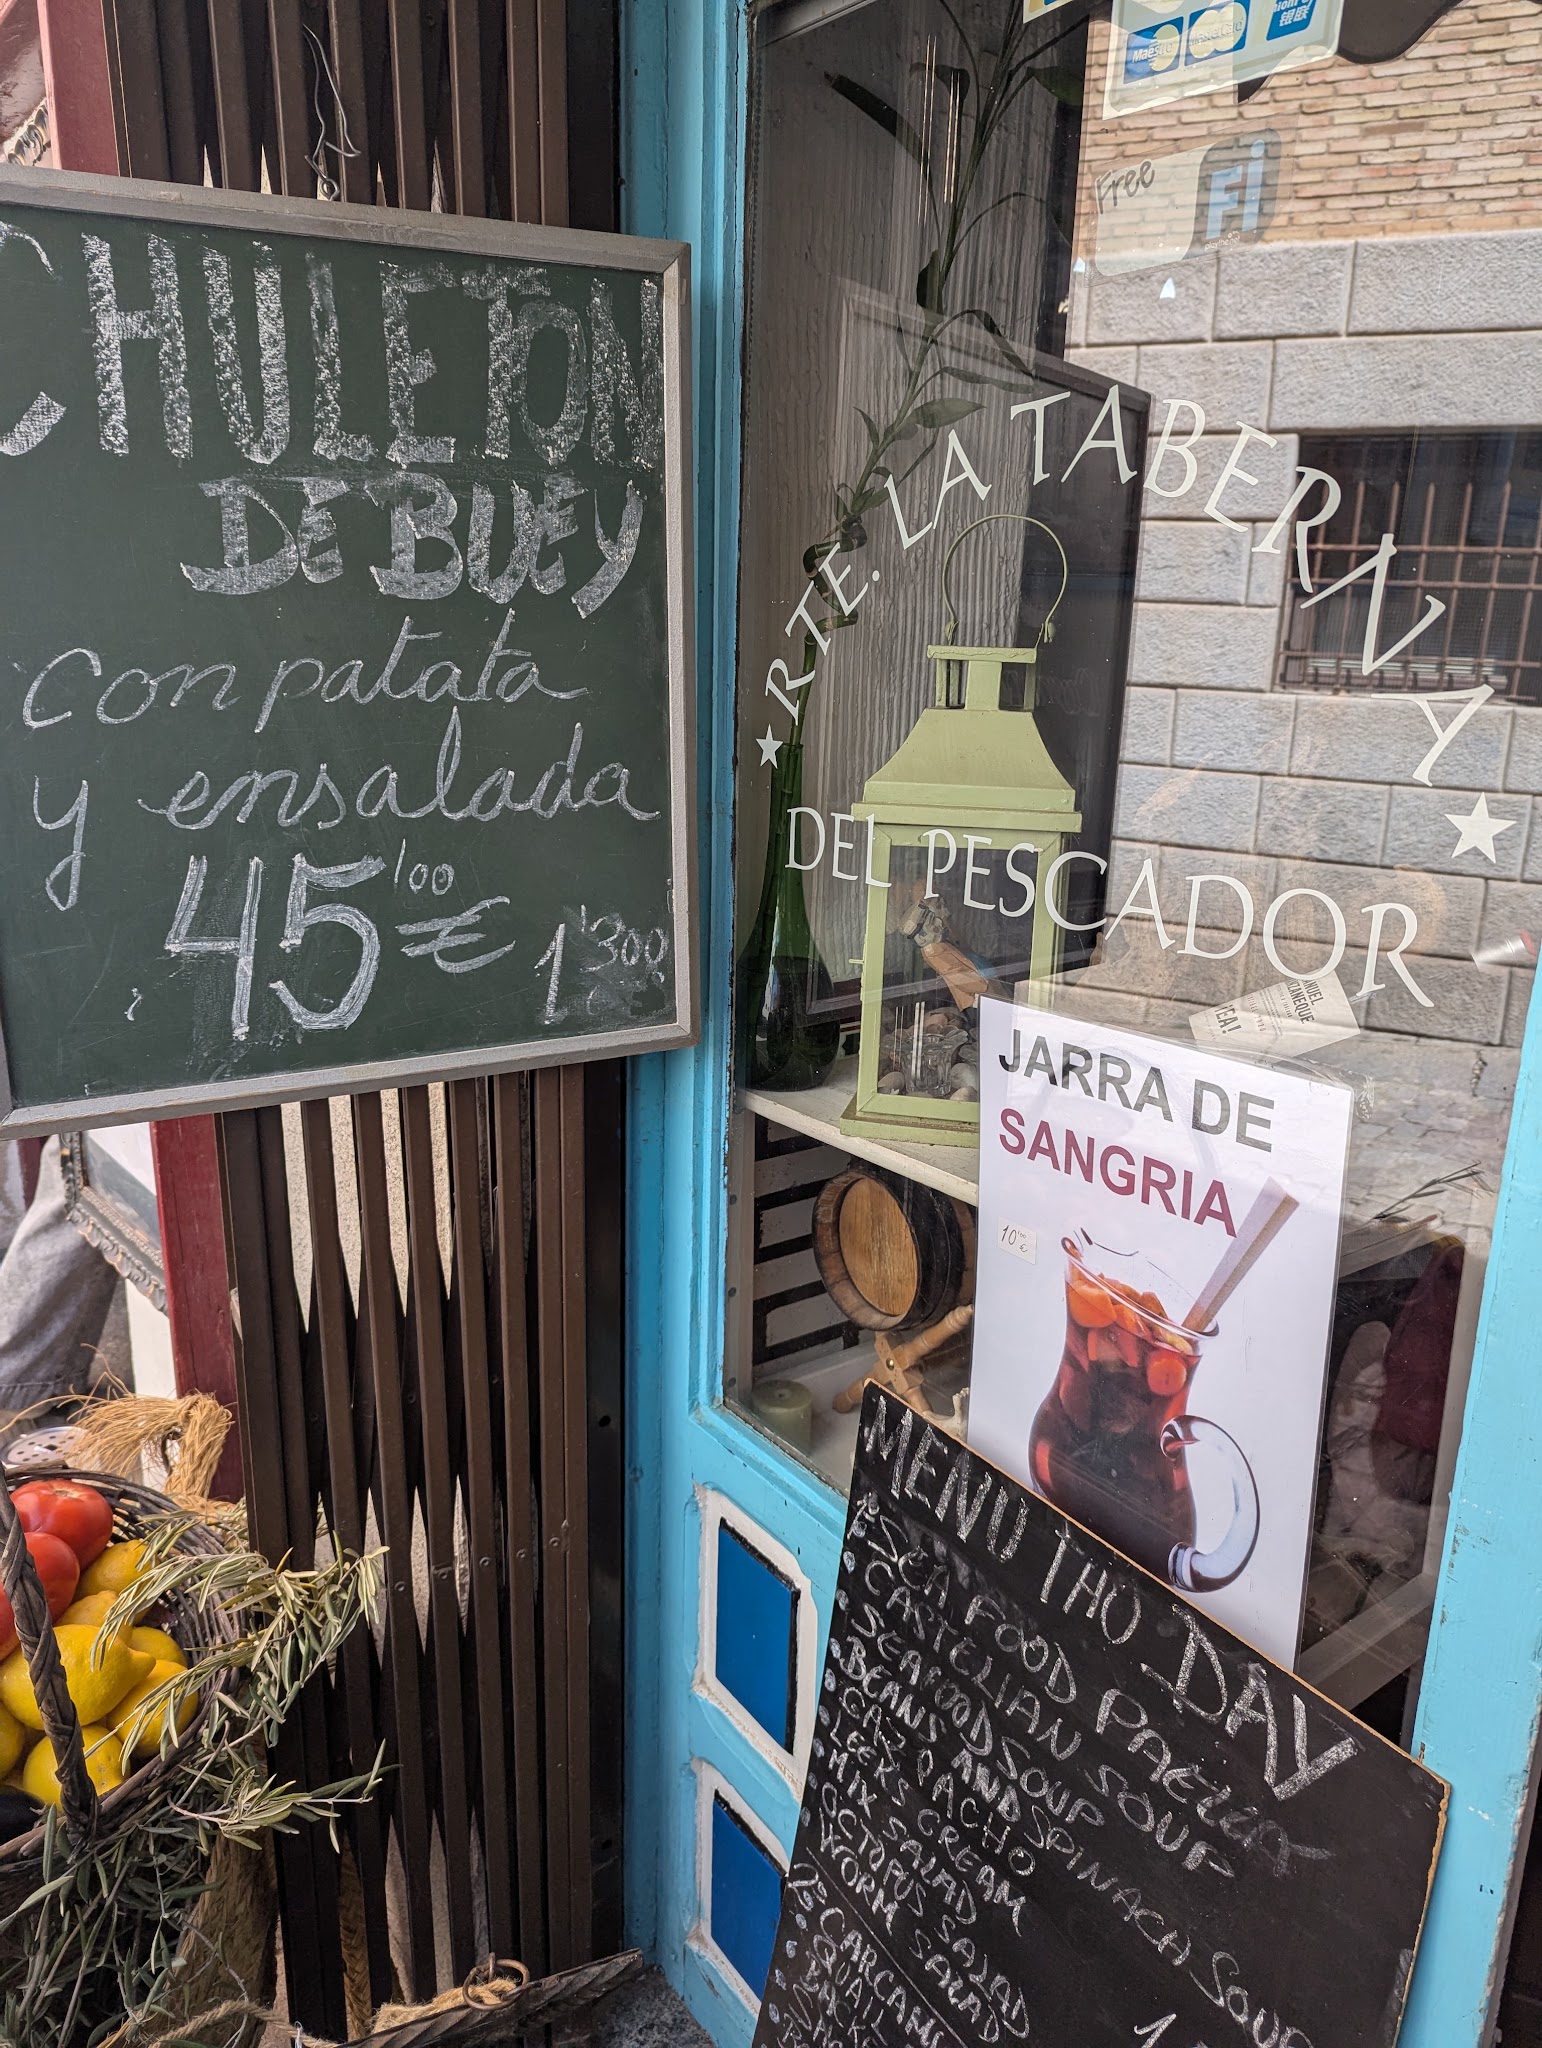 CHULETON
DE BUEY
con patata
y ensalada
45'00 €
1'300
Maestro
银联
Free
Fi
★ RTE. LA TABERNA ★
DEL PESCADOR
JARRA DE
SANGRIA
10'00 €
MENU THO DAY
1º SEA FOOD PAELLA
CASTELIAN SOUP
SEAFOOD SOUP
BEANS AND SPINACH SOUP
GAZPACHO
LEEKS CREAM
MIX SALAD
OCTOPUS SALAD
WORM SALAD
2º CARCAMU
QUAIL
BACK